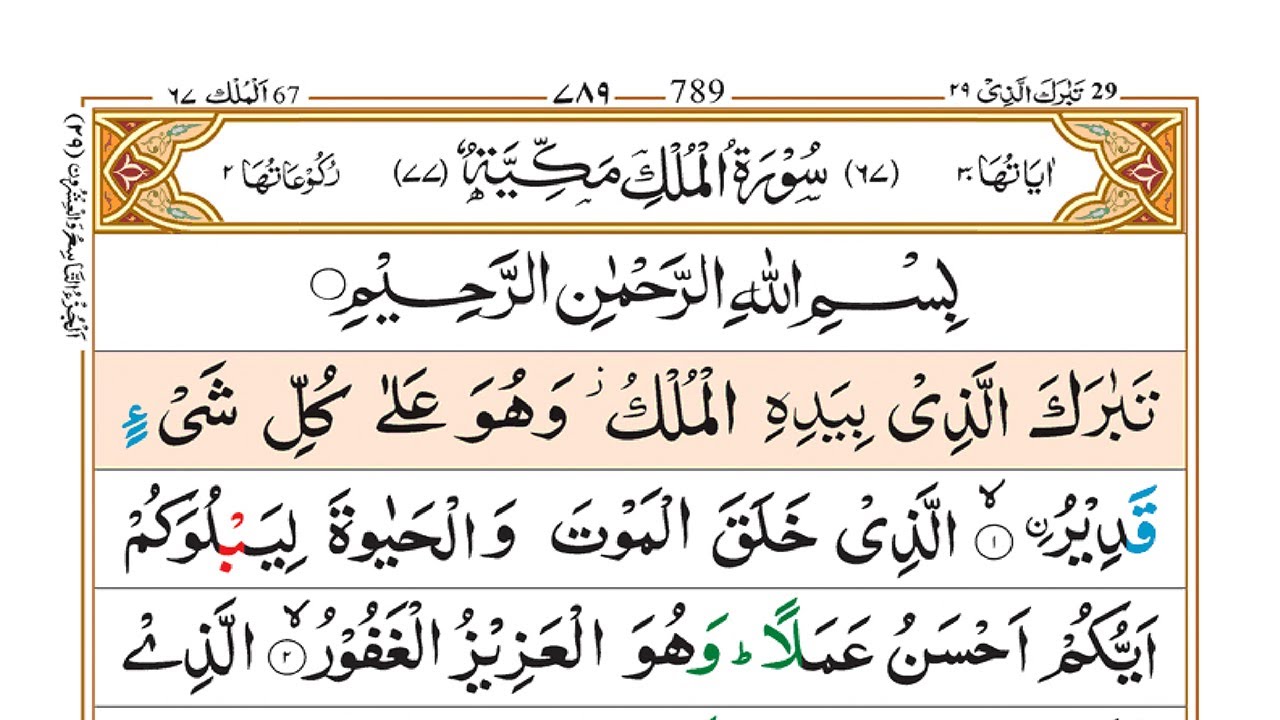 29 تَبٰرَكَ الَّذِیْ ٢٩ 789 ٧٨٩ 67 اَلْمُلْك ٦٧
اٰيَاتُهَا ٣٠ (٦٧) سُوْرَةُ الْمُلْكِ مَكِّيَّةٌ (٧٧) رُكُوْعَاتُهَا ٢
بِسْمِ اللّٰهِ الرَّحْمٰنِ الرَّحِيْمِ
تَبٰرَكَ الَّذِیْ بِيَدِهِ الْمُلْكُ ز وَهُوَ عَلٰی كُلِّ شَیْءٍ
قَدِيْرُ ۨ ۙ ١ الَّذِیْ خَلَقَ الْمَوْتَ وَالْحَيٰوةَ لِيَبْلُوَكُمْ
اَيُّكُمْ اَحْسَنُ عَمَلًا ؕ وَهُوَ الْعَزِيْزُ الْغَفُوْرُ ۙ ٢ الَّذِیْ
اَلْجُزْءُ التَّاسِعُ وَالْعِشْرُوْنَ (٢٩)